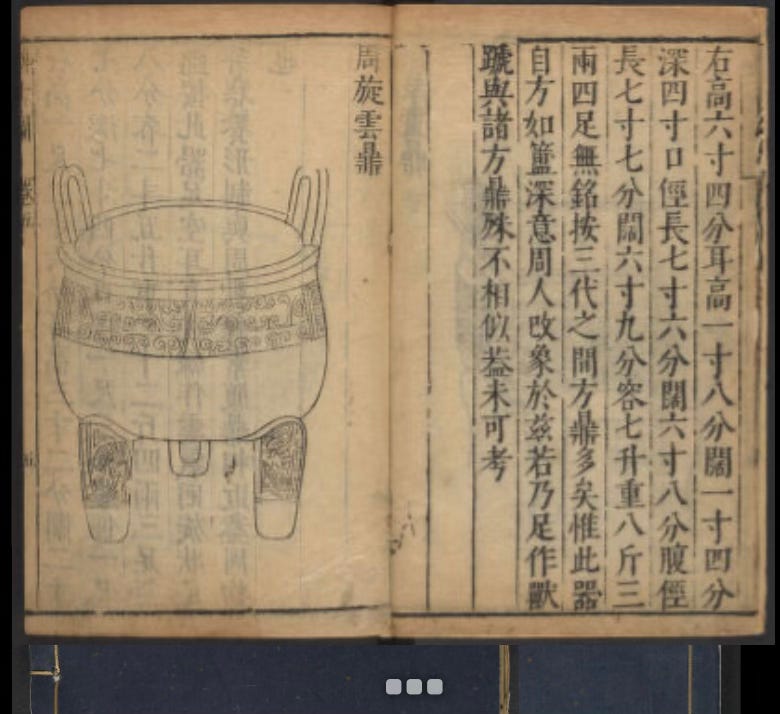 右高六寸四分耳高一寸八分闊一寸四分
深四寸口徑長七寸六分闊六寸八分腹徑
長七寸七分闊六寸九分容七升重八斤三
兩四足無銘按三代之間方鼎多矣惟此器
自方如簠深意周人改象於兹若乃足作獸
蹏與諸方鼎殊不相似蓋未可考
周旋雲鼎